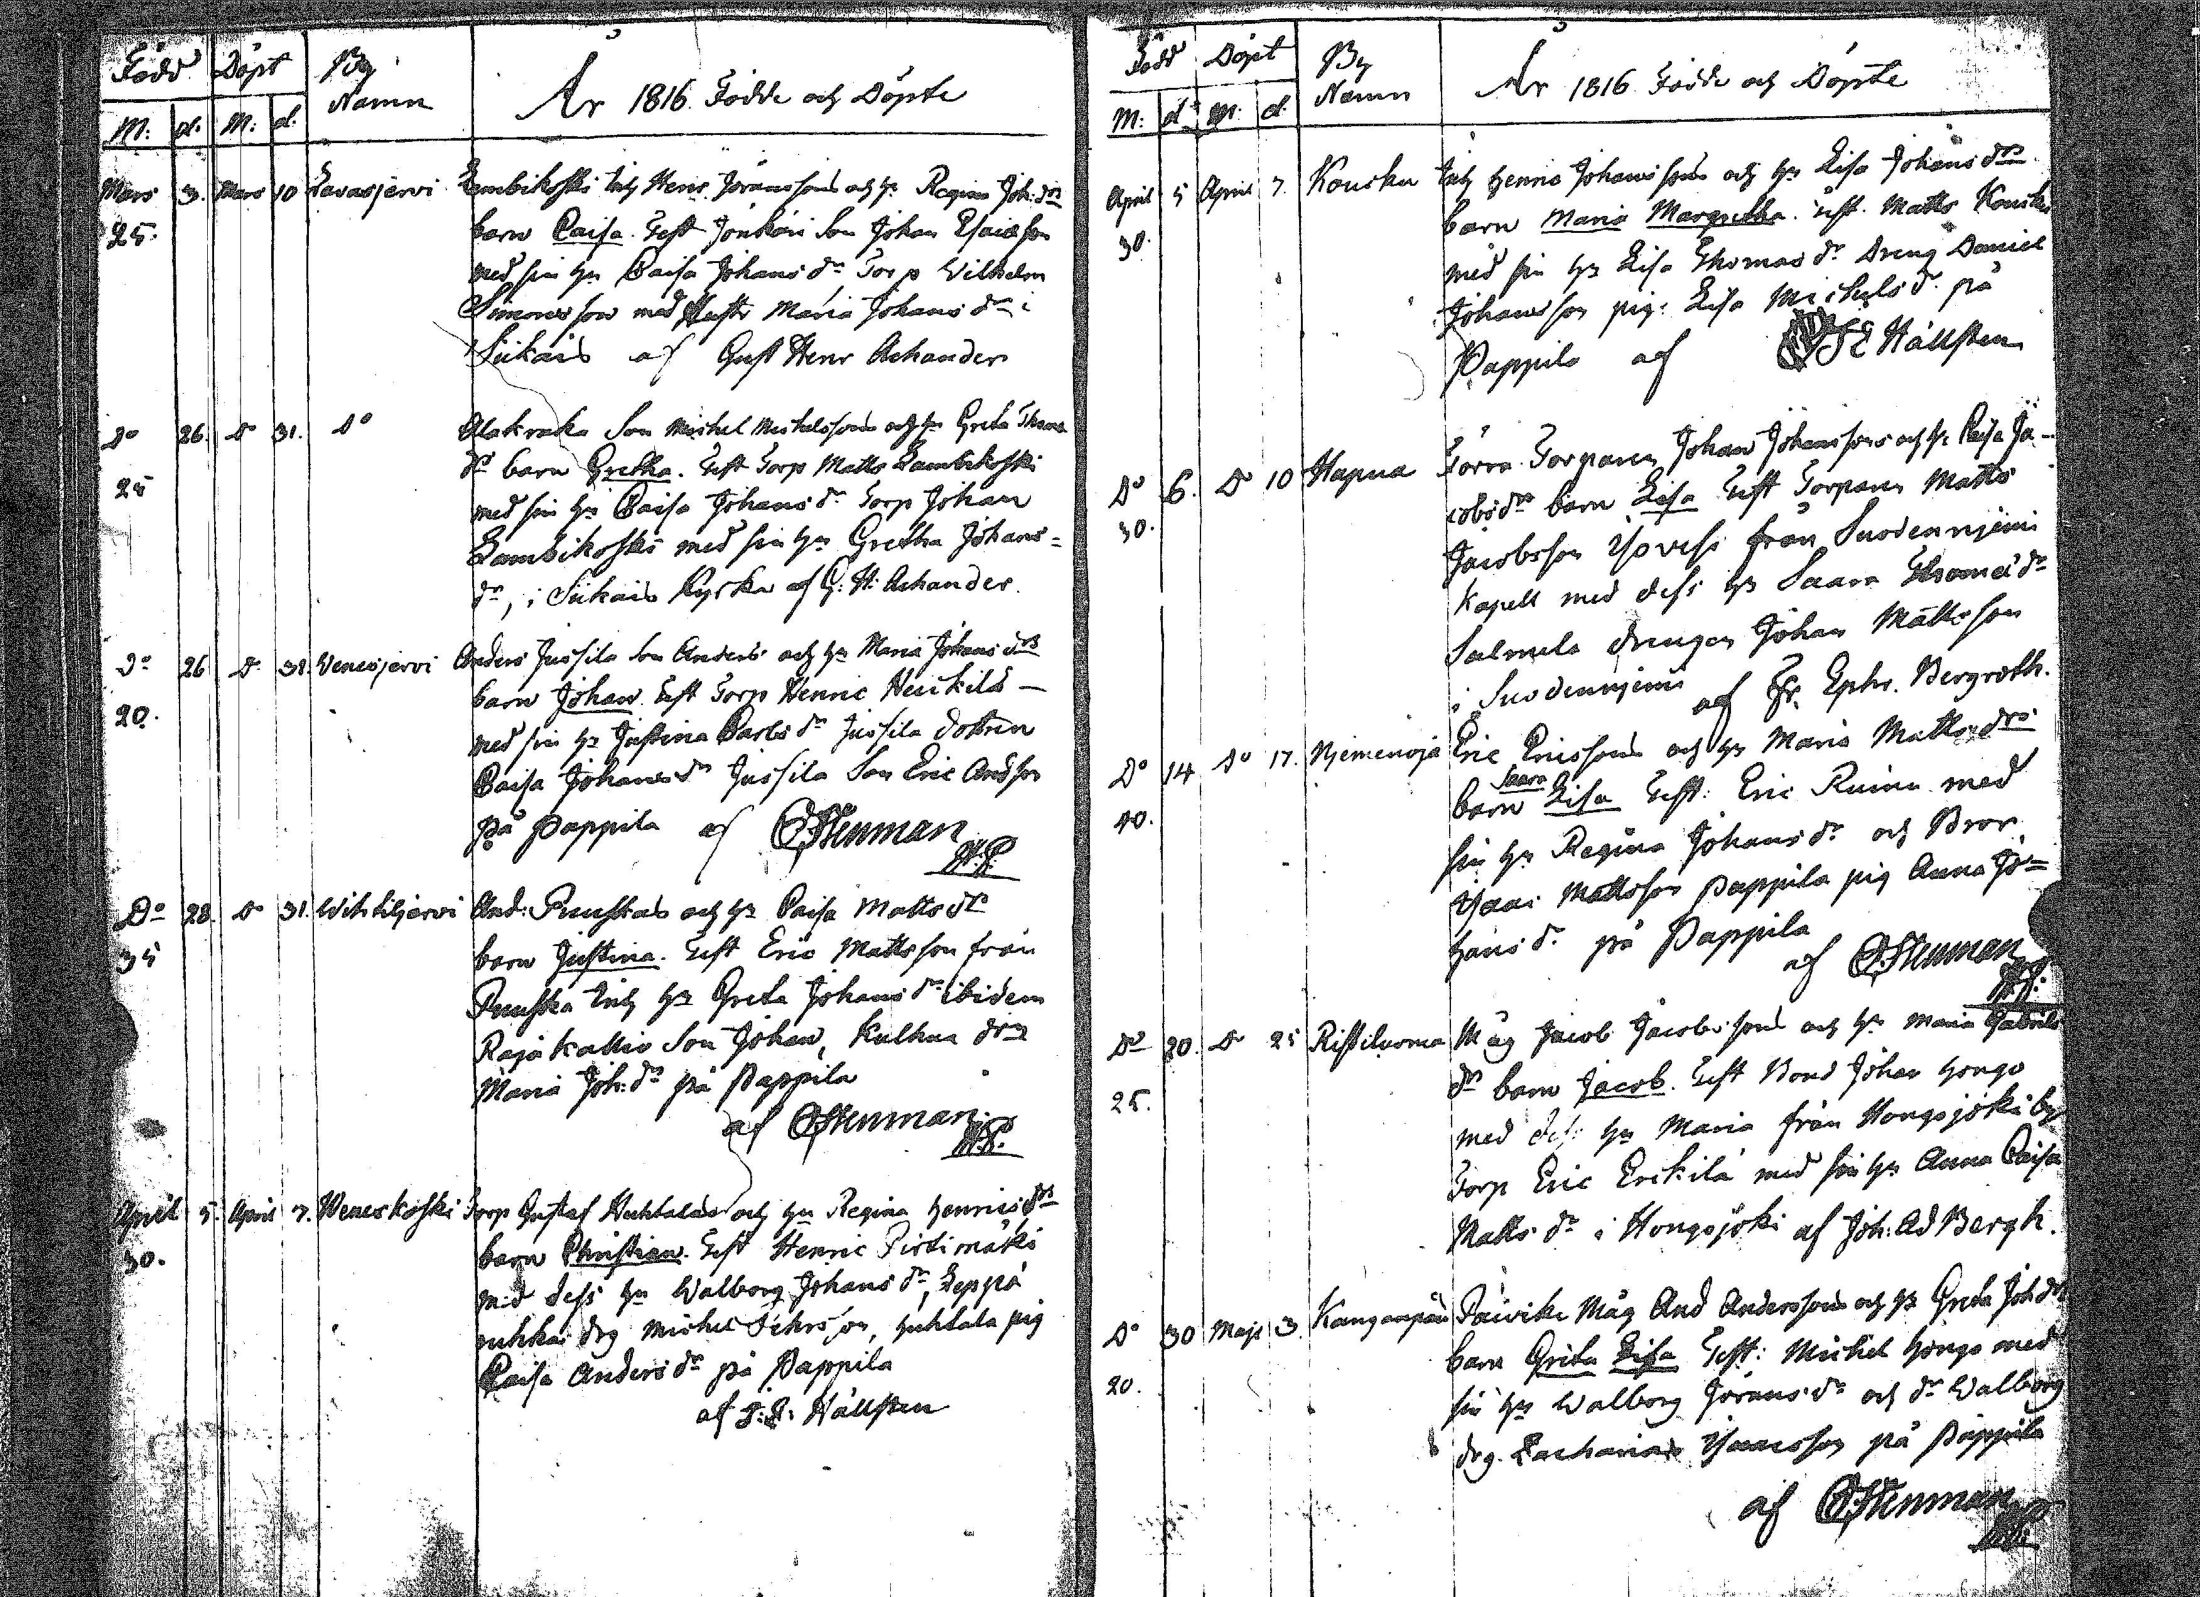 Född Döpt By
Namn
År 1816. Födde och Döpte
M: d. M: d.
Mars 3. Mars 10 Lavasjervi Lambikoski Inh Henr. Joranssons och h:u Regina Joh: d:rs
25. barn Caisa. Test Jonkari Son Johan
med sin h:u Caisa Johans d:r Torp Wilhelm
Simonsson med Hustr Maria Johans d:r i
Siikais af Gust Henr Achander
D:o 26. D:o 31. D:o Alakraka Son Michel Michelssons och h:u Greta Thomas
d:rs barn Gretha. Test Torp Matts Lambikoski
25 med sin h:u Caisa Johans d:r Torp Johan
Lambikoski med sin h:u Gretha Johans=
d:r, i Siikais Kyrka af G: H: Achander.
D:o 26 D:o 31. Venesjervi Anders Jussila Son Anders och h:u Maria Johans d:rs
20. barn Johan Test Torp Henric Heickilä
med sin h:u Justina Carls d:r Jussila dottren
Caisa Johans d:r Jussila Son Eric Andsson
på Pappila af Stenman
D:o 28. D:o 31. Wihtiljervi And: Puuskas och h:u Caisa Matts d:rs
35 barn Justina. Test Eric Mattsson från
Puuska Inh h:u Greta Johans d:r ibidem
Rajakallio Son Johan, Kulhua d:rn
Maria Joh: d:r på Pappila
af Stenman
April 5. April 7. Weneskoski Torp Gustaf Huhtalas och h:u Regina Henrics d:rs
30. barn Christian. Test Henric Pirtimäki
med dess h:u Walborg Johans d:r, Leppä
ruhka drg Michel, Huhtala pig
Caisa Anders d:r på Pappila
af Hällsten
Född Döpt By
Namn
År 1816 Födde och Döpte
M: d: M: d.
April 5 April 7. Kousku Inh Henric Johanssons och h:u Lisa Johans d:rs
30. barn Maria Margretha. Test. Matts Kousku
med sin h:u Lisa Thomas d:r Dreng Daniel
Johansson pig: Lisa Michels d:r på
Pappila af Hällsten
D:o 6. D:o 10 Hapua Torra Torparen Johan Johanssons och h:u Caisa Ja-
30. cobs d:rs barn Lisa Test Torparen Matts
Jacobsson Isovesi från Suodenniemi
Kapell med dess h:u Saara Thomæ d:r
Salmela drengen Johan Mattsson
i Suodenniemi af Fr. Ephr. Bergroth.
D:o 14 D:o 17. Njemenoja Eric Ericssons och h:u Maria Matts d:rs
40. barn Saara Lisa Test: Eric Ruina med
sin h:u Regina Johans d:r och Bror
Isaac Mattsson Pappila pig Anna Jo=
hans d:r på Pappila
af Stenman
D:o 20. D:o 25 Ristiluoma Måg Jacob Jacobssons och h:u Maria Gabriels
25. d:rs barn Jacob. Test Bond Johan Hongo
med dess h:u Maria från Hongojoki by
Torp Eric Erckilä med sin h:u Anna Caisa
Matts d:r i Hongojoki af Joh: Ad Bergh.
D:o 30 Maji 3. Kanganpää Paivike Måg And Anderssons och h:u Greta Joh d:rs
20. barn Greta Lisa Test: Michel Hongo med
sin h:u Walborg Jörans d:r och d:r Walborg
drg. Zacharias Isaacsson på Pappila
af Stenman